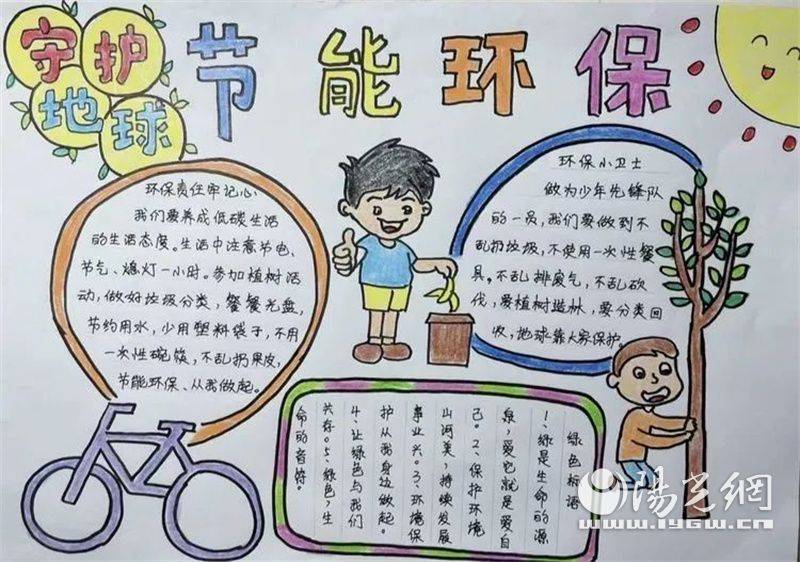 守护
地球
节能环保
环保责任牢记心
我们要养成低碳生活
的生活态度。生活中注意节电、
节气、熄灯一小时。参加植树活
动,做好垃圾分类,餐餐光盘,
节约用水,少用塑料袋子,不用
一次性碗筷,不乱扔果皮,
节能环保、从我做起。
环保小卫士
做为少年先锋队
的一员,我们要做到不
乱扔垃圾,不使用一次性餐
具。不乱排废气,不乱砍
伐,爱植树造林,要分类回
收,地球靠大家保护。
绿色标语
1、绿是生命的源
泉,爱它就是爱自
己。2、保护环境
山河美,持续发展
事业兴。3、环境保
护从我身边做起。
4、让绿色与我们
共存。5、绿色,生
命的音符。
陽光網
www.iygw.cn